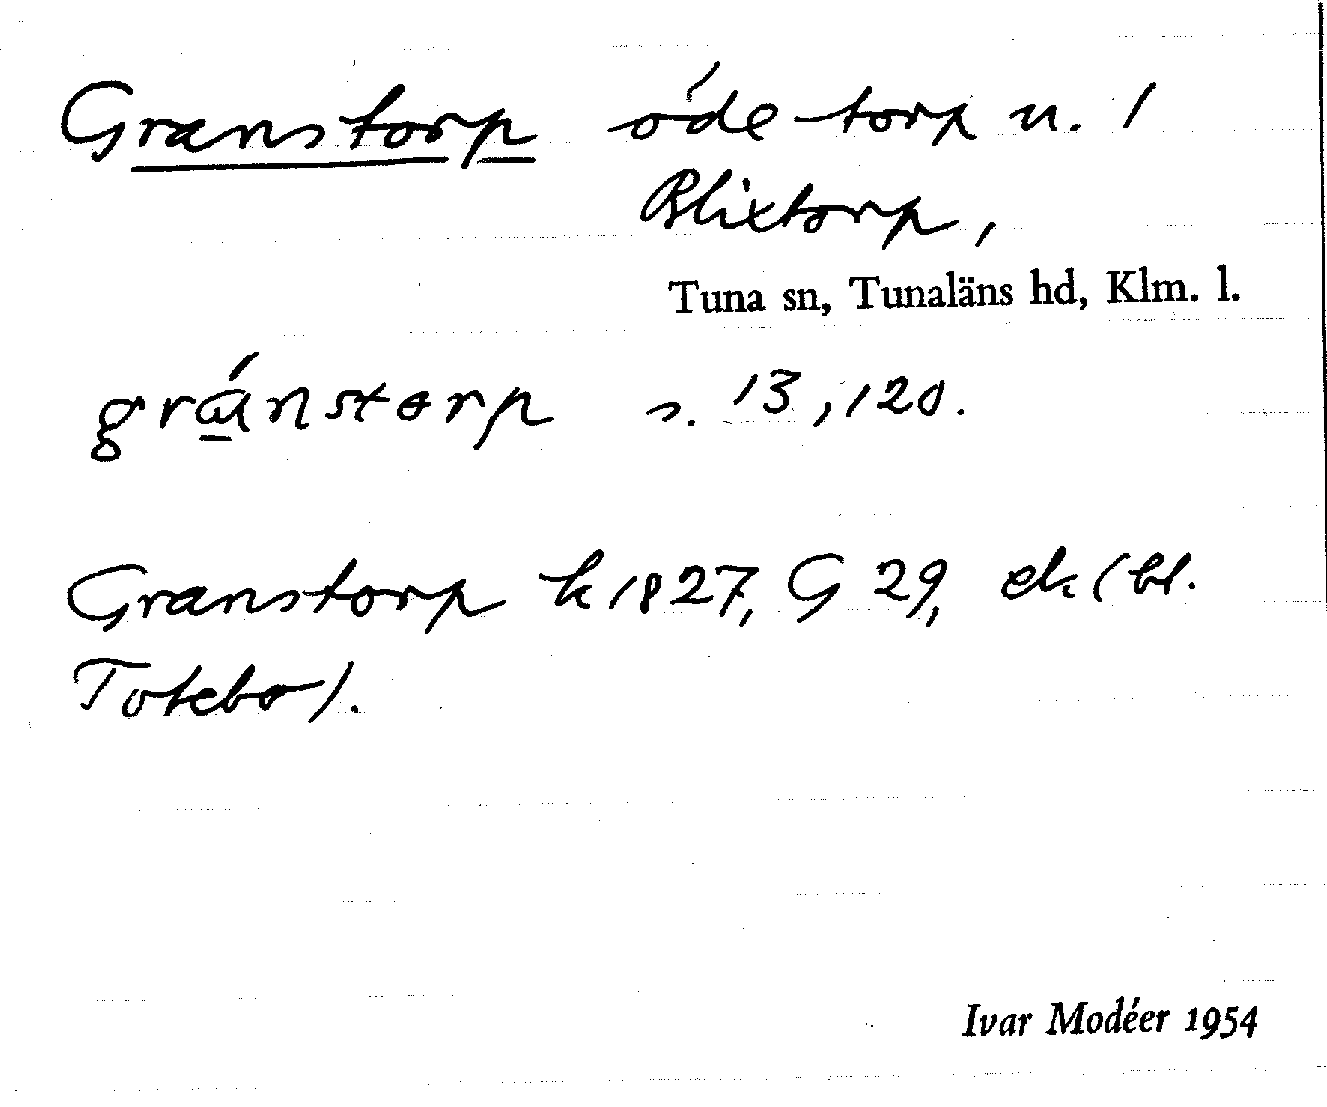 Granstorp öde torp u. 1
Blixtorp,
Tuna sn, Tunaläns hd, Klm. l.
gránstorp s. 13, 120.
Granstorp k 1827, G 29, ek (bl.
Totebo).
Ivar Modéer 1954